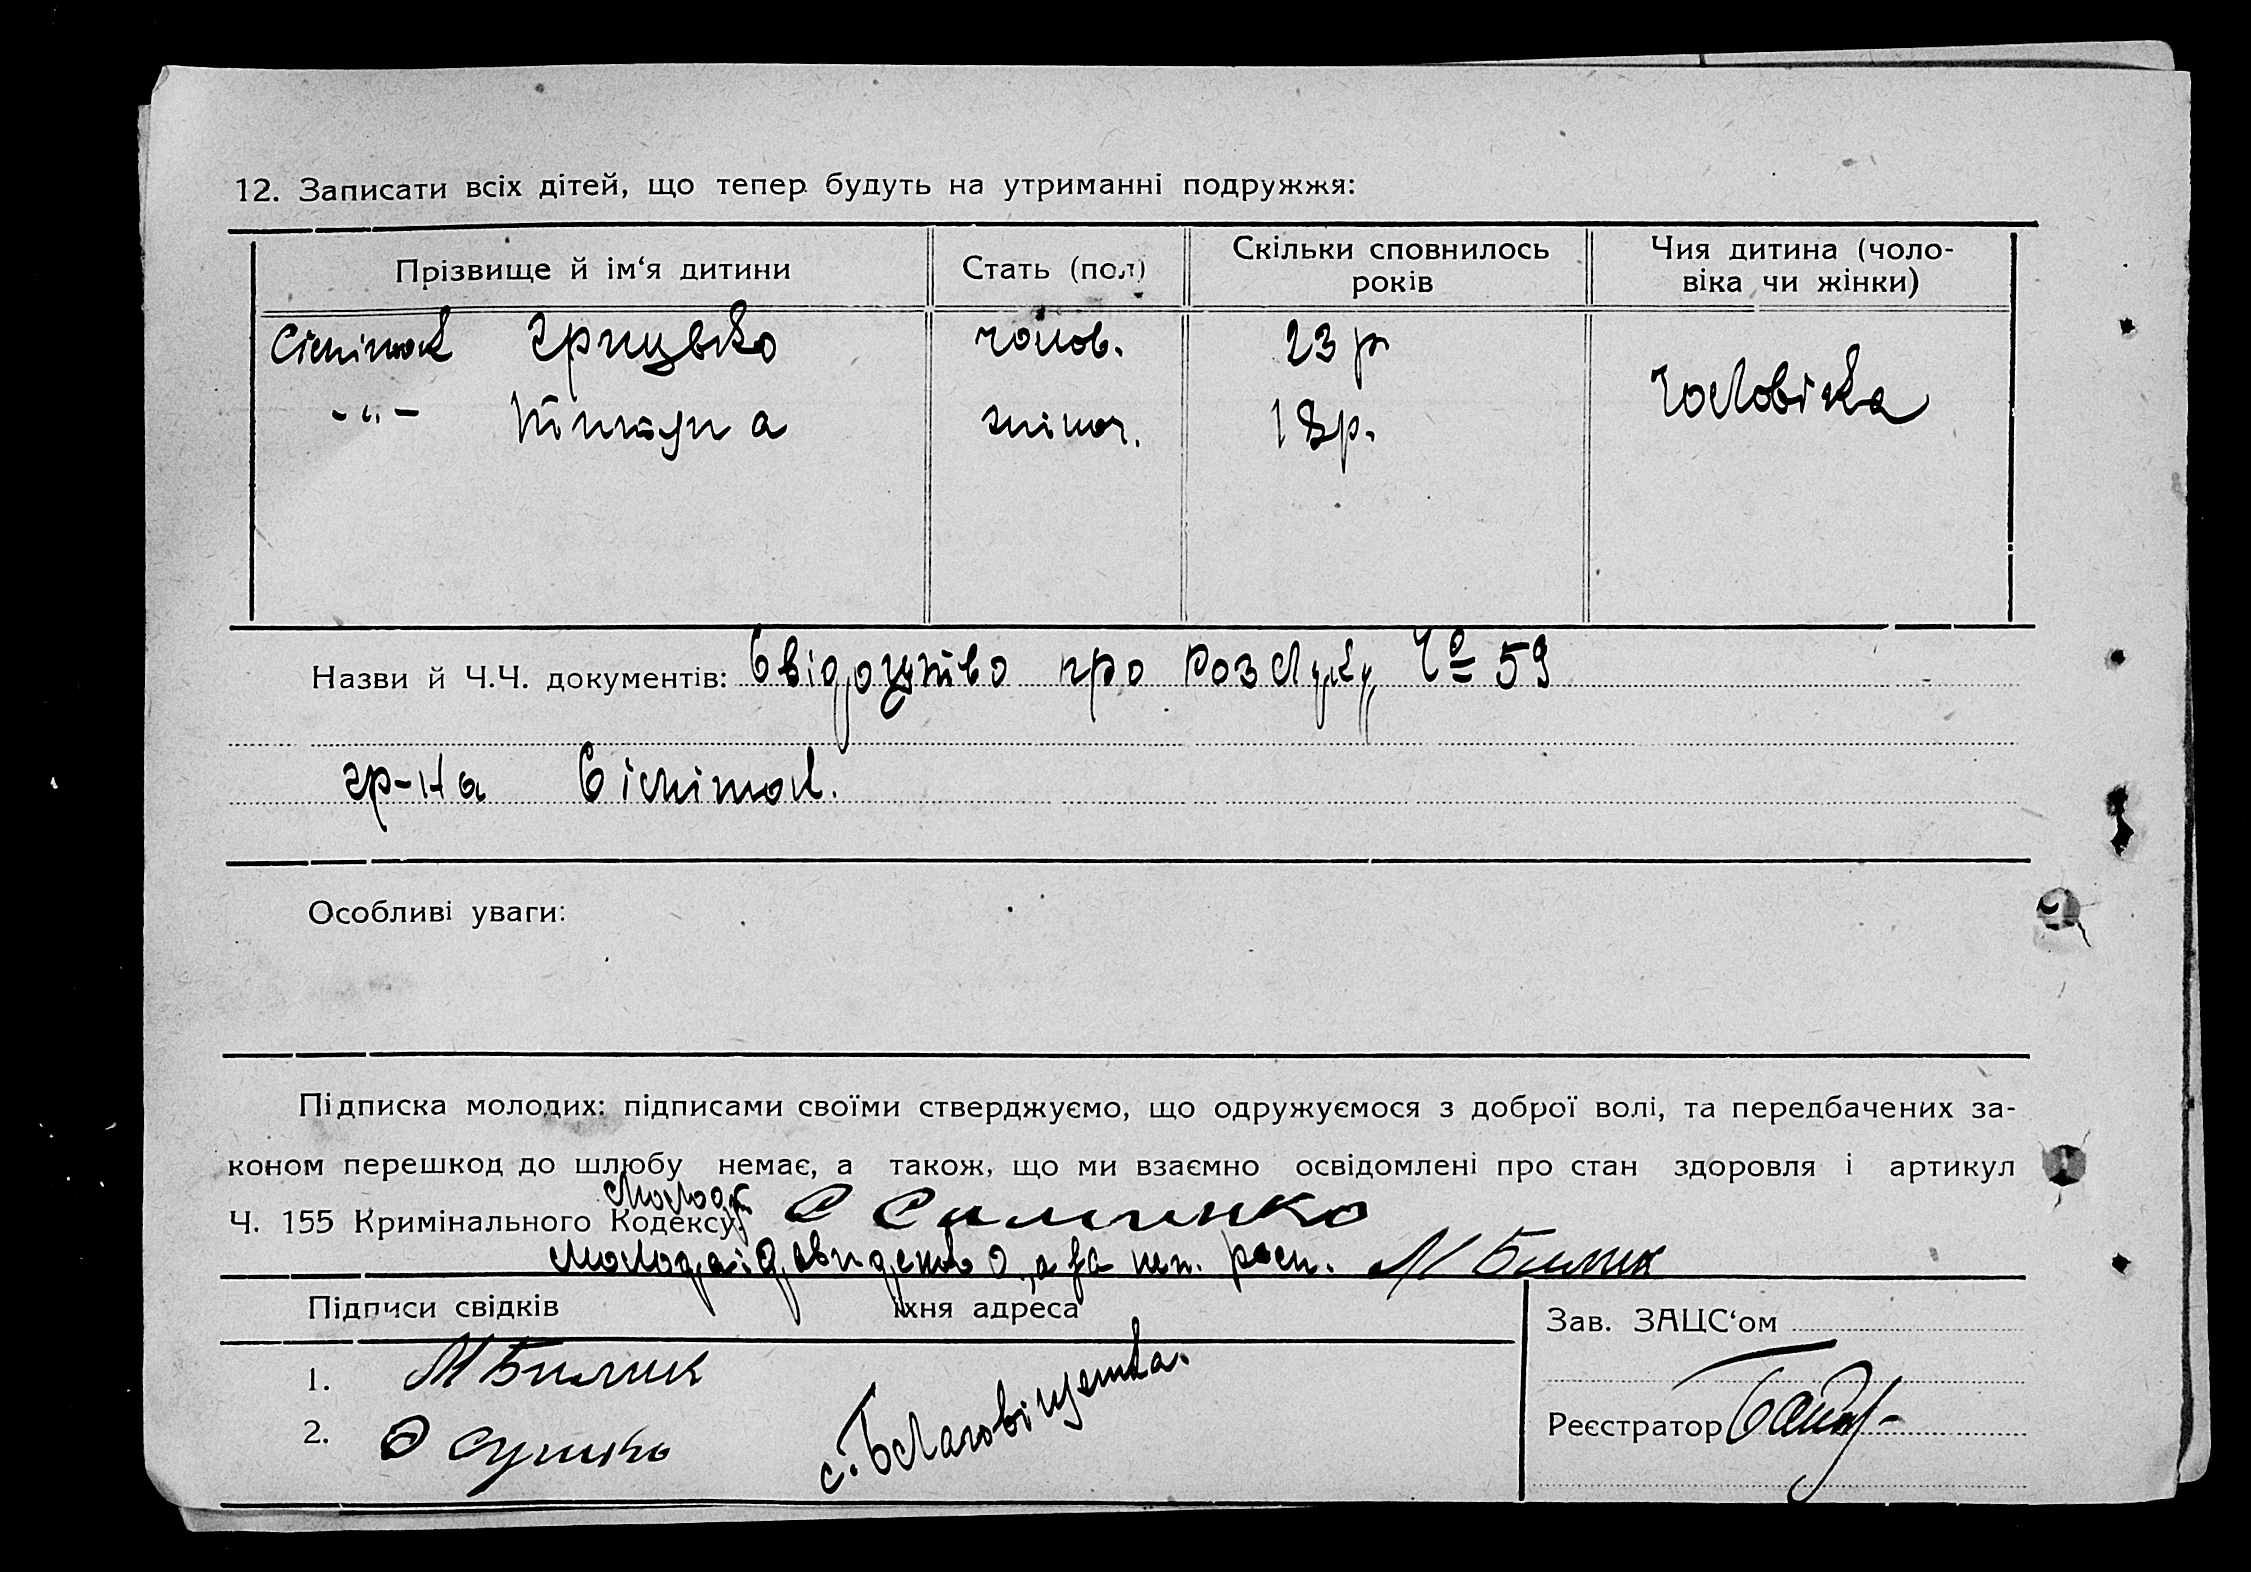 12. Записати всіх дітей, що тепер будуть на утриманні подружжя:
Прізвище й ім‘я дитини
Стать (пол)
Скільки сповнилось
років
Чия дитина (чоло-
віка чи жінки)
Грицько
чолов.
23 р
чоловіка
-"-
жіноч.
18р.
Назви й Ч.Ч. документів: Свідоцтво про розлуку Ч° 59
гр-на
Особливі уваги:
Підписка молодих: підписами своїми стверджуємо, що одружуємося з доброї волі, та передбачених за-
коном перешкод до шлюбу немає, а також, що ми взаємно освідомлені про стан здоровля і артикул
Ч. 155 Кримінального Кодексу.
Молода: за неп. расп. М Билик
Підписи свідків
їхня адреса
Зав. ЗАЦС‘ом
1. М Билик
с. Благовіщенка.
2.
Реєстратор